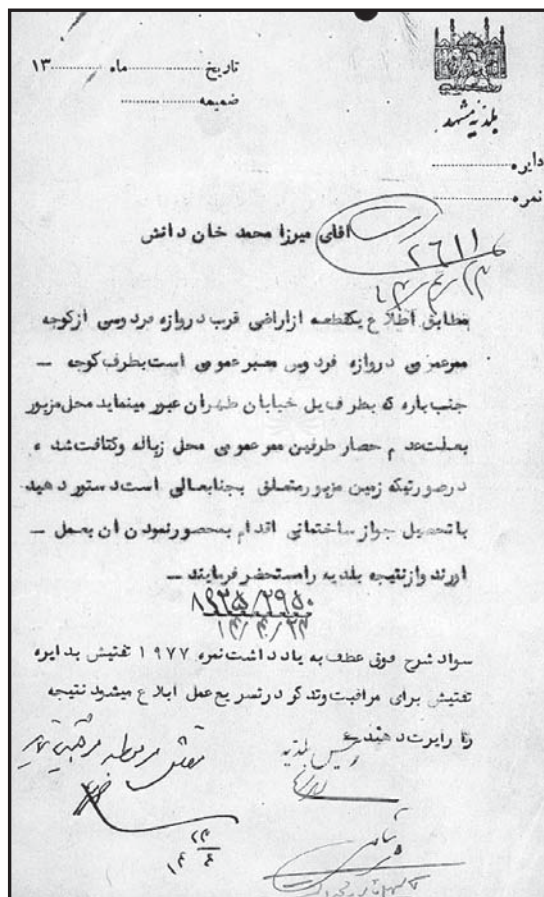 بلدیه مشهد
تاریخ ............ ماه ............ ۱۳
ضمیمه ............
دایره ............
نمره ............
آقای میرزا محمد خان دانش
۲۶۱۱
مطابق اطلاع یکقطعه ازاراضی قرب دروازه فردوسی ازکوچه
دروازه فردوسی معبر عمومی است بطرف کوچه –
جنب باره که بطرف پل خیابان طهران عبور مینماید محل مزبور
بعلت عدم حصار طرفین ممر عمومی محل زباله وکثافت شده
درصورتیکه زمین مزبور متعلق بجنابعالی است دستور دهید
با تحصیل جواز ساختمانی اقدام بمحصور نمودن آن بعمل –
آورند وازنتیجه بلدیه رامستحضر فرمایند –
سواد شرح فوق عطف به یادداشت نمره ۱۹۷۷ تفتیش بدایره
تفتیش برای مراقبت وتذکر درتسریع عمل ابلاغ میشود نتیجه
را راپرت دهند
رئیس بلدیه